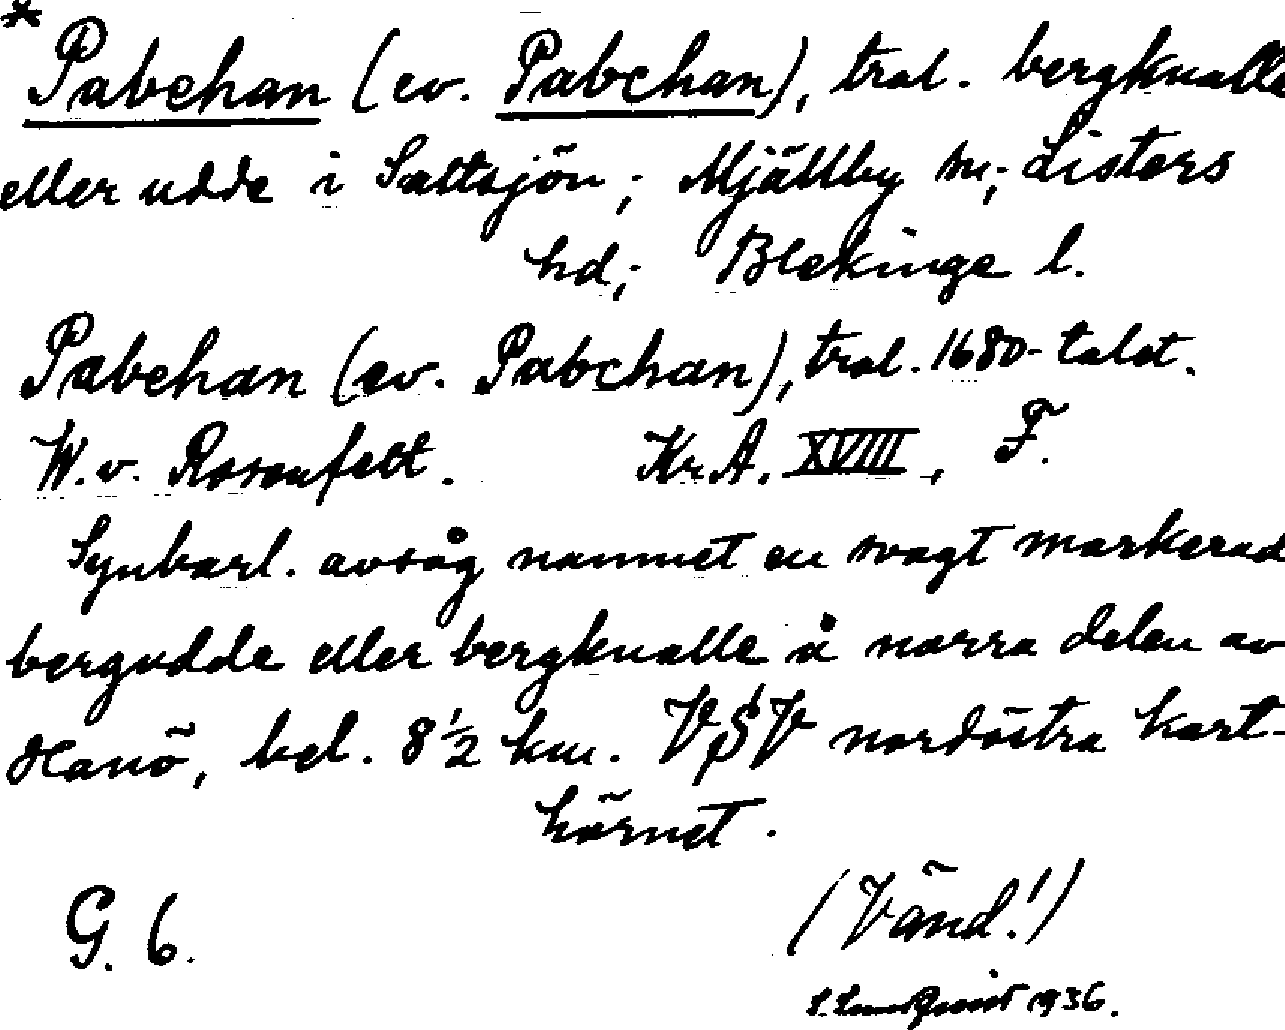 * Pabehan (ev. Pabchan), trol. bergknalle
eller udde i Saltsjön; Mjällby sn; Listers
hd; Blekinge l.
Pabehan (ev. Pabchan), trol. 1680-talet.
W. v. Rosenfelt. Kr.A. XVIII, F.
Synbarl. avsåg namnet en svagt markerad
bergudde eller bergknalle å norra delen av
Hanö, bel. 8 1/2 km. VSV nordöstra kart-
hörnet.
G. 6. (Vänd!)
1936.